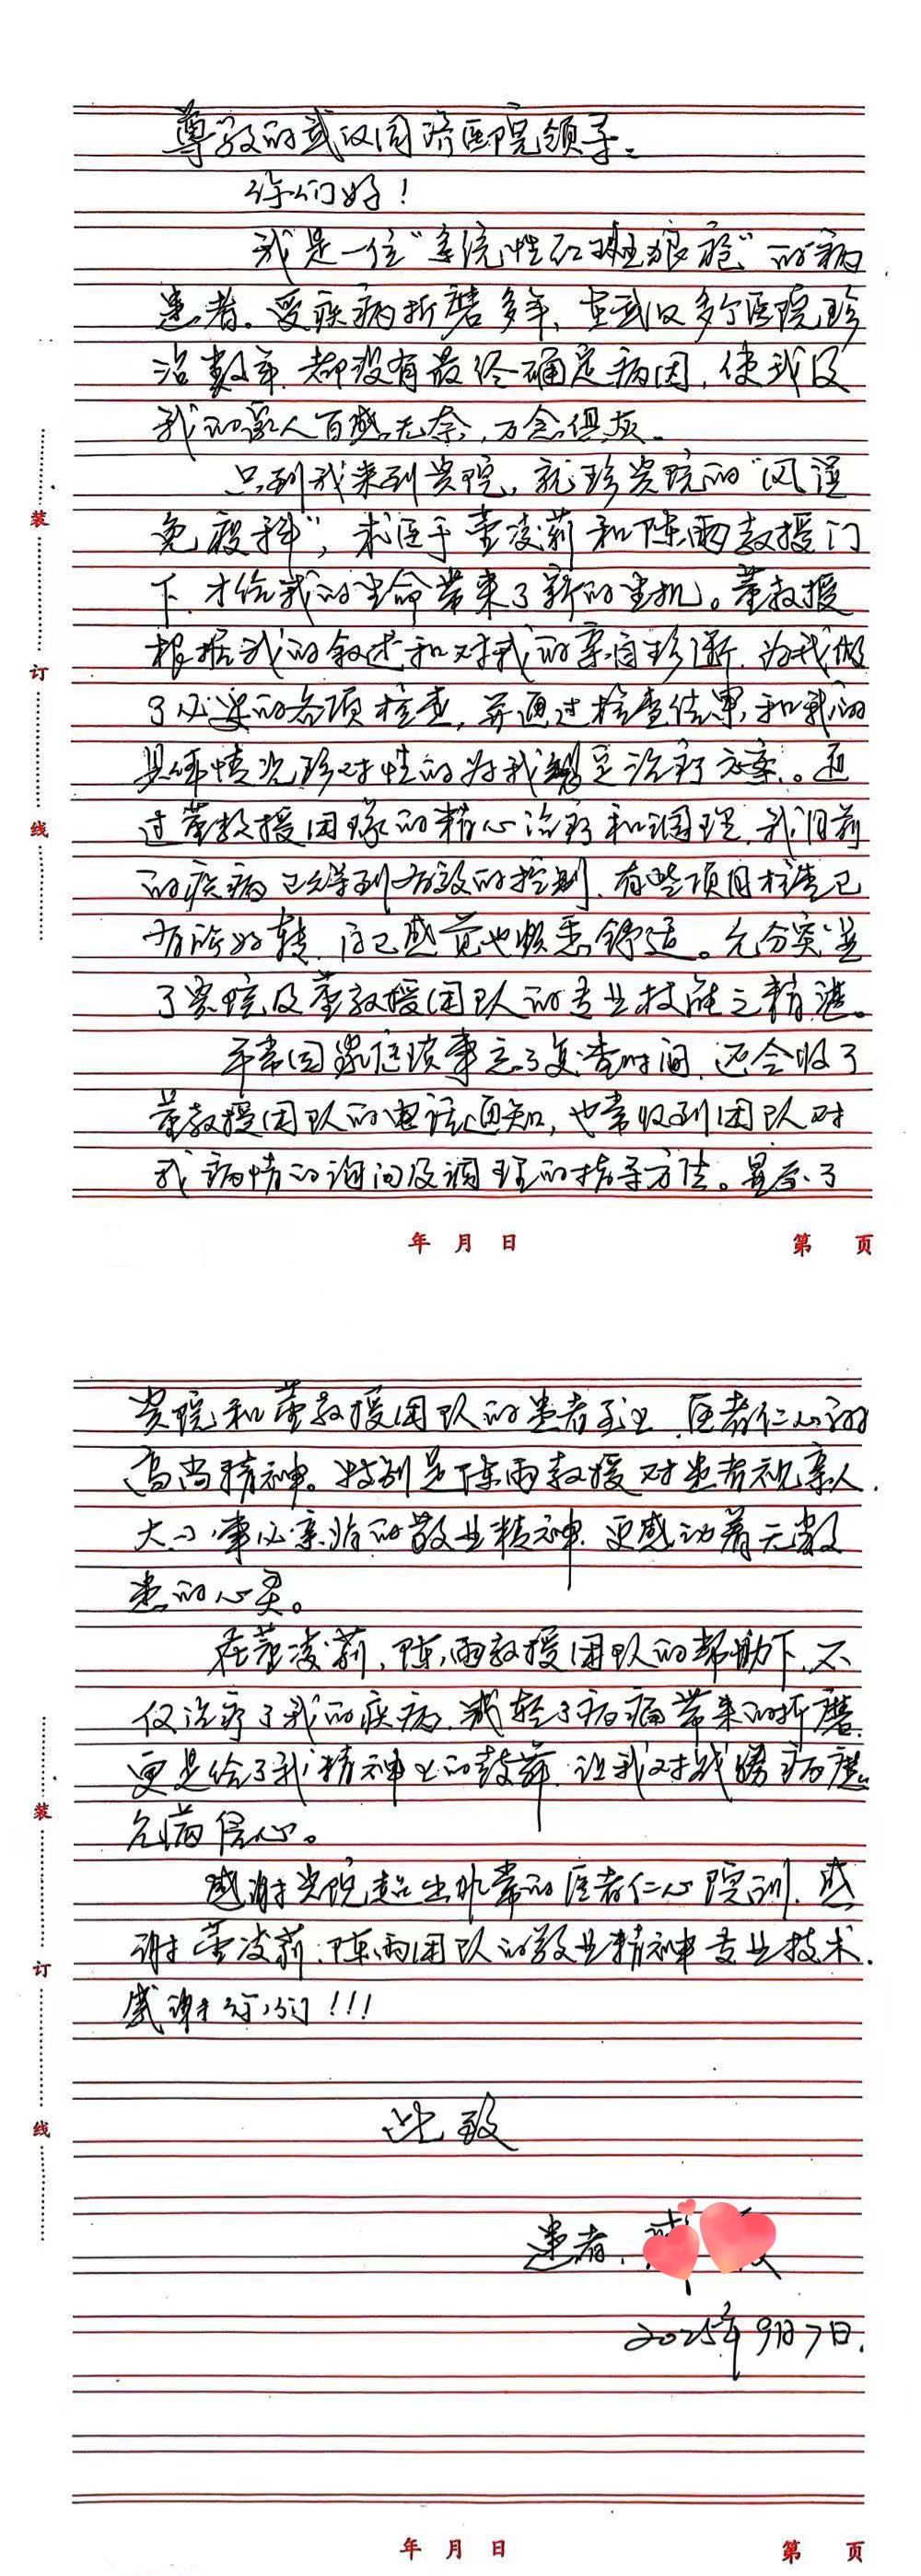 尊敬的武汉同济医院领导:
你们好!
我是一位"系统性红斑狼疮"的病
患者。受疾病折磨多年、在武汉多个医院珍
治数年.都没有最终确定病因,使我及
我的家人百感无奈,万念俱灰.
只到我来到贵院,就珍贵院的"风湿
免疫科",求医于董凌莉和陈雨教授门
下.才给我的生命带来了新的生机。董教授
根据我的叙述和对我的亲自珍断.为我做
了必要的各项检查,并通过检查结果,和我的
具体情况珍对性的为我制定治疗方案。通
过董教授团队的精心治疗和调理.我目前
的疾病已得到有效的控制.有些项目检查已
有所好转.自己感觉也顺意舒适。充分突显
了贵院及董教授团队的专业技能之精湛。
平常因家庭琐事忘了复查时间.还会收了
董教授团队的电话通知,也常收到团队对
我病情的询问及调理的指导方法。显示了
年 月 日
第 页
贵院和董教授团队的患者至上.医者仁心的
高尚精神。特别是陈雨教授对患者视亲人.
大小事必亲临的敬业精神.更感动着无数
患的心灵。
在董凌莉、陈雨教授团队的帮助下.不
仅治疗了我的疾病.减轻了病痛带来的折磨.
更是给了我精神上的鼓舞.让我对战胜病魔
充满信心。
感谢贵院超出非常的医者仁心院训.感
谢董凌莉、陈雨团队的敬业精神专业技术.
感谢你们!!!
此致
患者.
2025年9月7日.
年 月 日
第 页
装
订
线
装
订
线